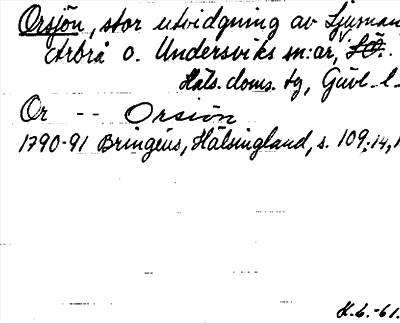 Orsjön, stor utvidgning av Ljusnan
Arbrå o. Undersviks sn:ar, V. SÖ.
Häls. doms. tg, Gävl. l.
Or -- Orsiön
1790-91 Bringéus, Hälsingland, s. 109, 14,
H.6.-61.